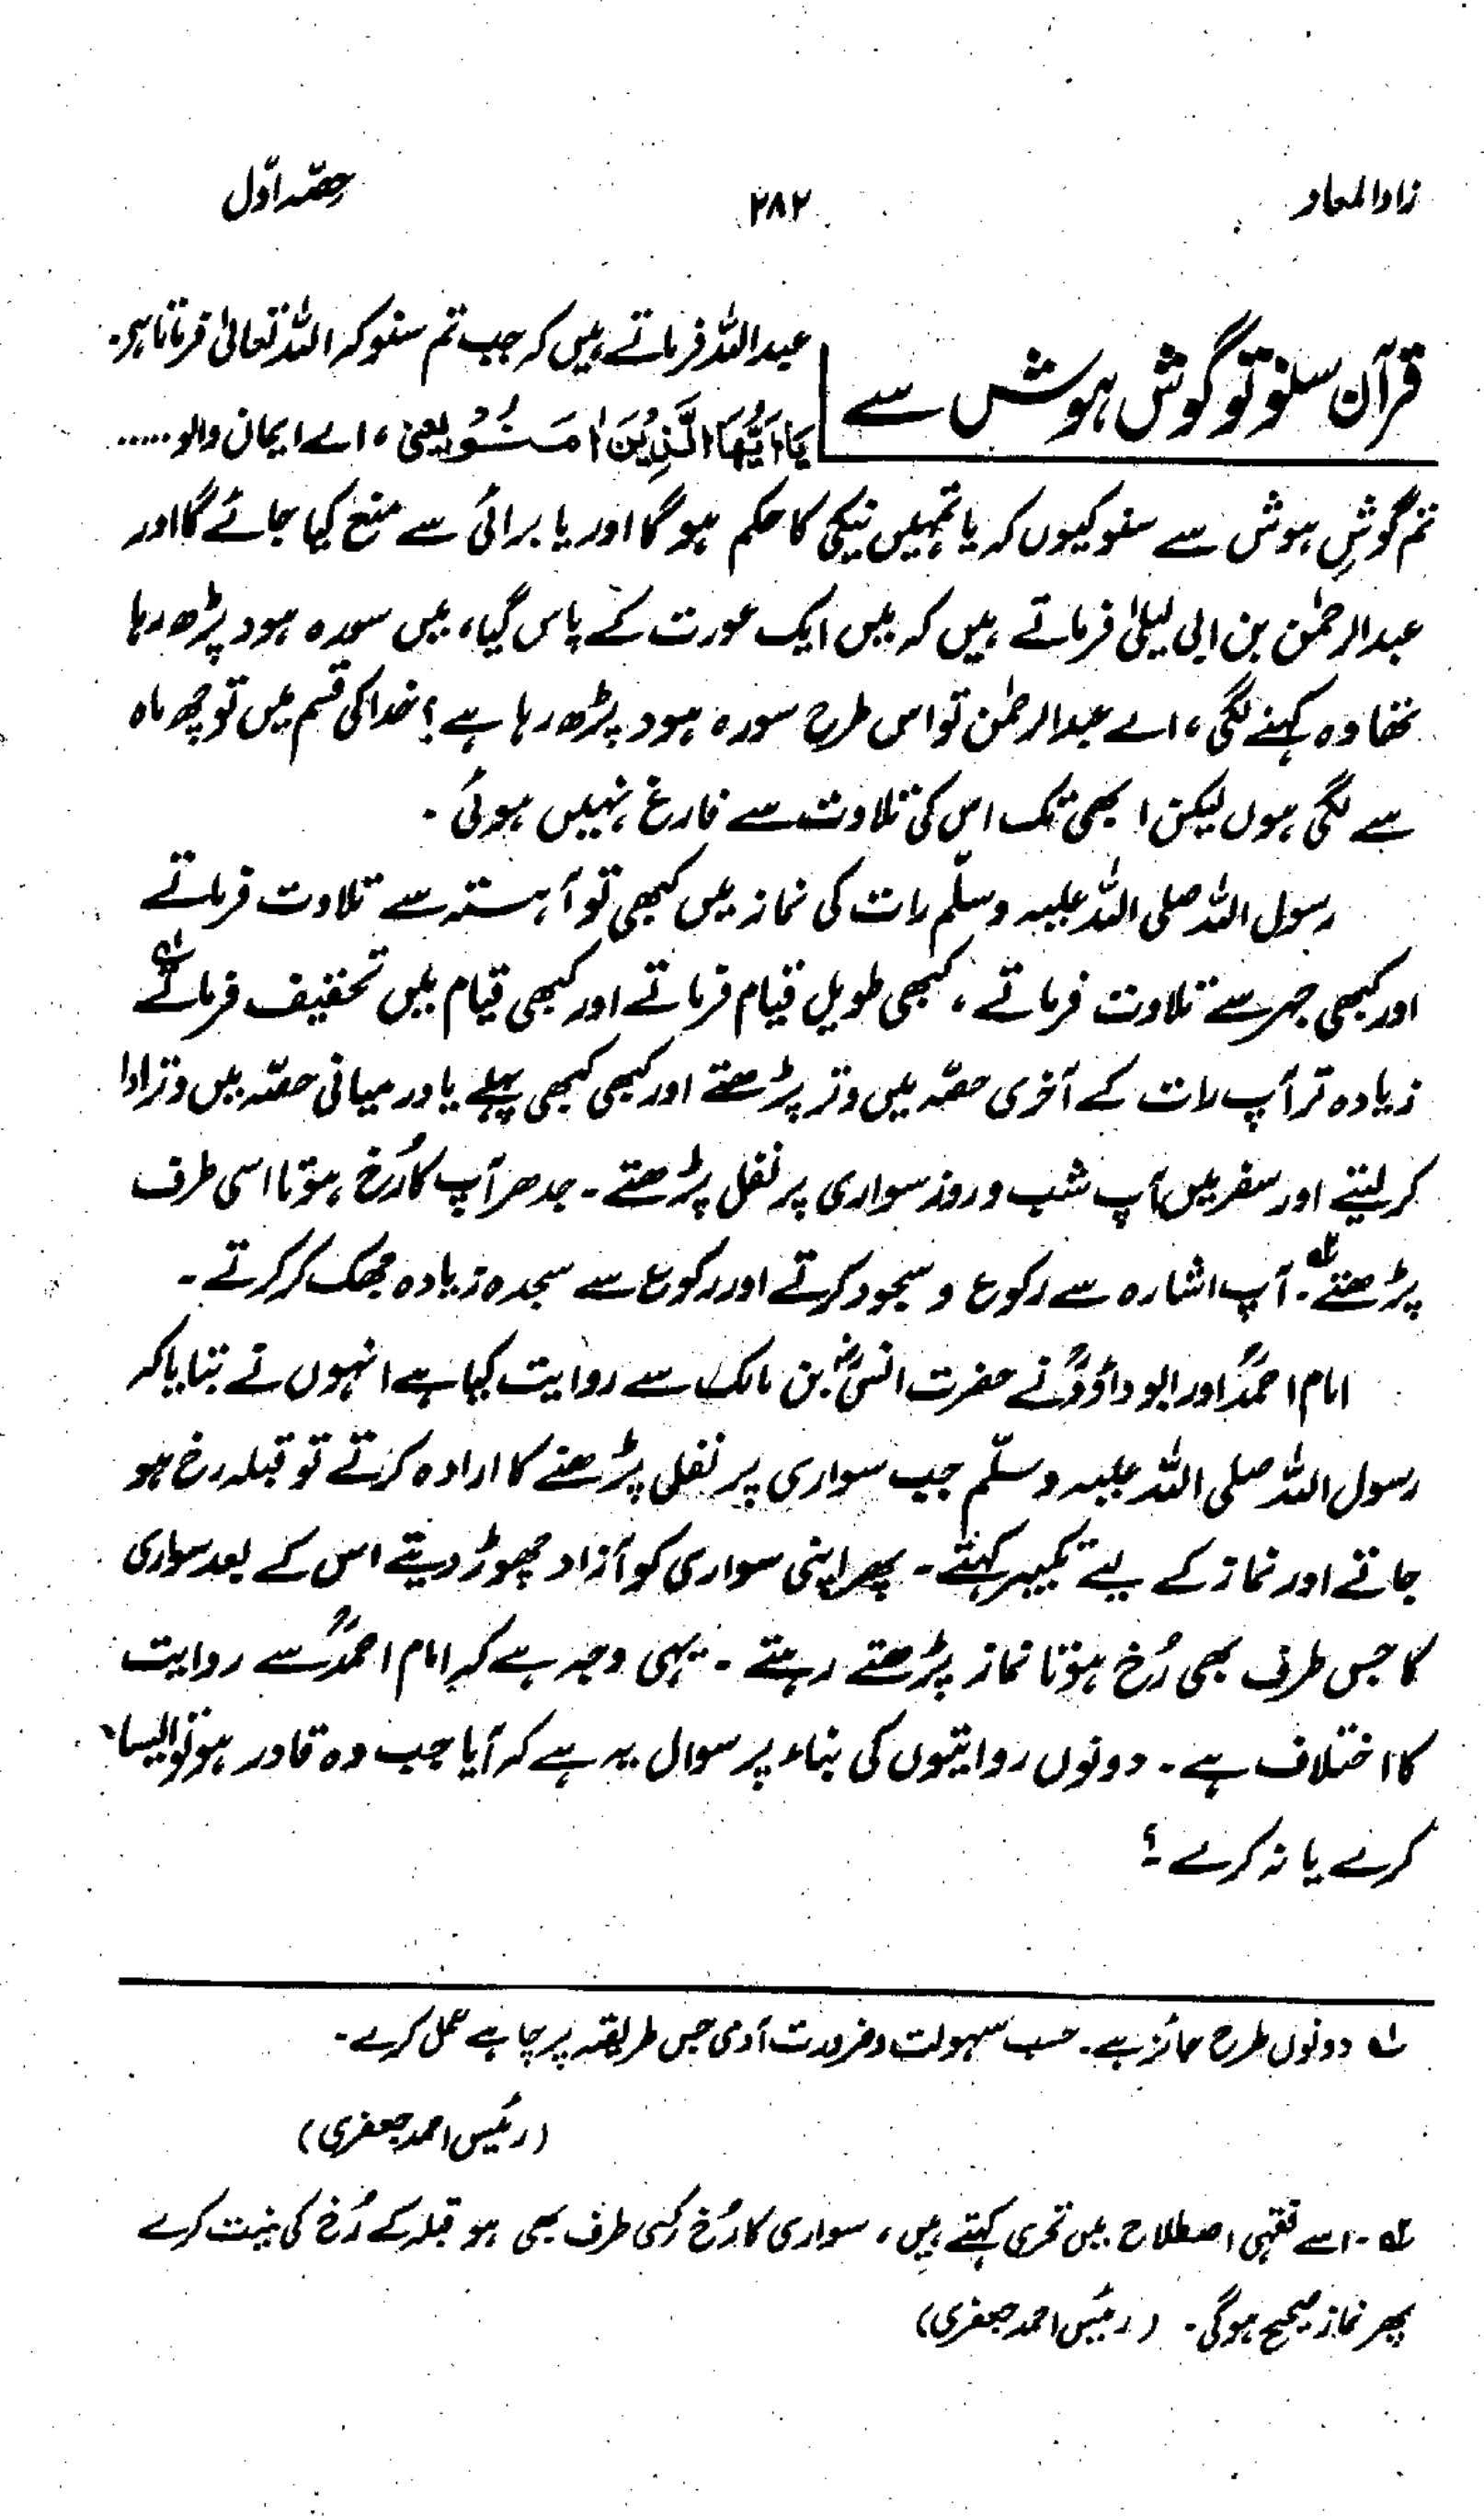 زاد المعاد ۲۸۲ حصّہ اوّل
قرآن سنو تو گوش ہوش سے
عبداللہ فرماتے ہیں کہ جب تم سنو کہ اللہ تعالیٰ فرماتا ہے۔
یَا اَیُّهَا الَّذِیْنَ اٰمَنُوْ یعنی، اے ایمان والو .....
تم گوشِ ہوش سے سنو کیوں کہ یا تمہیں نیکی کا حکم ہو گا اور یا برائی سے منع کیا جائے گا اور
عبدالرحمٰن بن ابی لیلیٰ فرماتے ہیں کہ میں ایک عورت کے پاس گیا، میں سورہ ہود پڑھ رہا
تھا وہ کہنے لگی، اے عبدالرحمٰن تو اس طرح سورہ ہود پڑھ رہا ہے؟ خدا کی قسم میں تو چھ ماہ
سے لگی ہوں لیکن ابھی تک اس کی تلاوت سے فارغ نہیں ہوئی۔
رسول اللہ صلی اللہ علیہ وسلّم رات کی نماز میں کبھی تو آہستہ سے تلاوت فرماتے
اور کبھی جہر سے تلاوت فرماتے، کبھی طویل قیام فرماتے اور کبھی قیام میں تخفیف فرماتے ؎۱
زیادہ تر آپ رات کے آخری حصّہ میں وتر پڑھتے اور کبھی کبھی پہلے یا درمیانی حصّہ میں وتر ادا
کر لیتے اور سفر میں آپ شب و روز سواری پر نفل پڑھتے۔ جدھر آپ کا رُخ ہوتا اسی طرف
پڑھتے ؎۲۔ آپ اشارہ سے رکوع و سجود کرتے اور رکوع سے سجدہ زیادہ جھک کر کرتے۔
امام احمدؒ اور ابو داؤدؒ نے حضرت انسؓ بن مالک سے روایت کیا ہے انہوں نے بتایا کہ
رسول اللہ صلی اللہ علیہ وسلّم جب سواری پر نفل پڑھنے کا ارادہ کرتے تو قبلہ رخ ہو
جاتے اور نماز کے لیے تکبیر کہتے۔ پھر اپنی سواری کو آزاد چھوڑ دیتے اس کے بعد سواری
کا جس طرف بھی رُخ ہوتا نماز پڑھتے رہتے۔ یہی وجہ ہے کہ امام احمدؒ سے روایت
کا اختلاف ہے۔ دونوں روایتوں کی بناء پر سوال یہ ہے کہ آیا جب وہ قادر ہو تو ایسا
کرے یا نہ کرے؟
؎۱ دونوں طرح جائز ہے۔ حسب سہولت و ضرورت آدمی جس طریقہ پر چاہے عمل کرے۔
(رئیس احمد جعفری)
؎۲۔ اسے فقہی اصطلاح میں تحری کہتے ہیں، سواری کا رُخ کسی طرف بھی ہو قبلہ کے رُخ کی نیت کرے
پھر نماز صحیح ہوگی۔ (رئیس احمد جعفری)